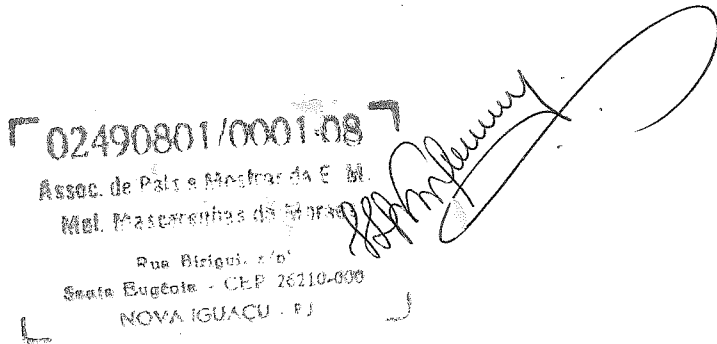 02490801/0001-08
Assoc. de Pais e Mestres da E. M.
Mal. Mascarenhas de Moraes
Rua Birigui, s/nº
Santa Eugênia - CEP 26210-000
NOVA IGUAÇU - RJ